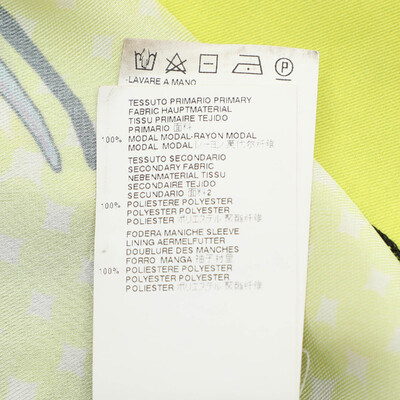 LAVARE A MANO
TESSUTO PRIMARIO PRIMARY
FABRIC HAUPTMATERIAL
TISSU PRIMAIRE TEJIDO
PRIMARIO 面料
100% MODAL MODAL-RAYON MODAL
MODAL MODAL レーヨン 莫代尔纤维
TESSUTO SECONDARIO
SECONDARY FABRIC
NEBENMATERIAL TISSU
SECONDAIRE TEJIDO
SECUNDARIO 面料2
100% POLIESTERE POLYESTER
POLYESTER POLYESTER
POLIESTER ポリエステル 聚酯纤维
FODERA MANICHE SLEEVE
LINING AERMELFUTTER
DOUBLURE DES MANCHES
FORRO MANGA 袖子衬里
100% POLIESTERE POLYESTER
POLYESTER POLYESTER
POLIESTER ポリエステル 聚酯纤维